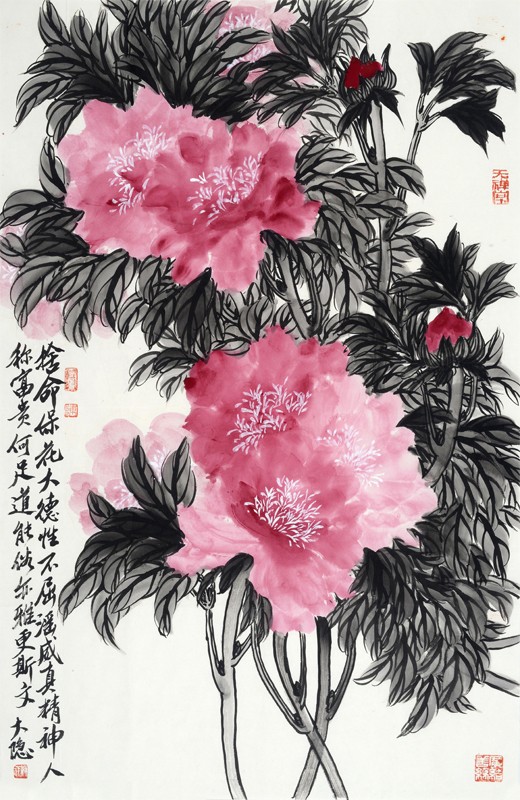 捨命保花大德性不屈淫威真精神人
称富贵何足道能俗亦雅更斯文 大隐